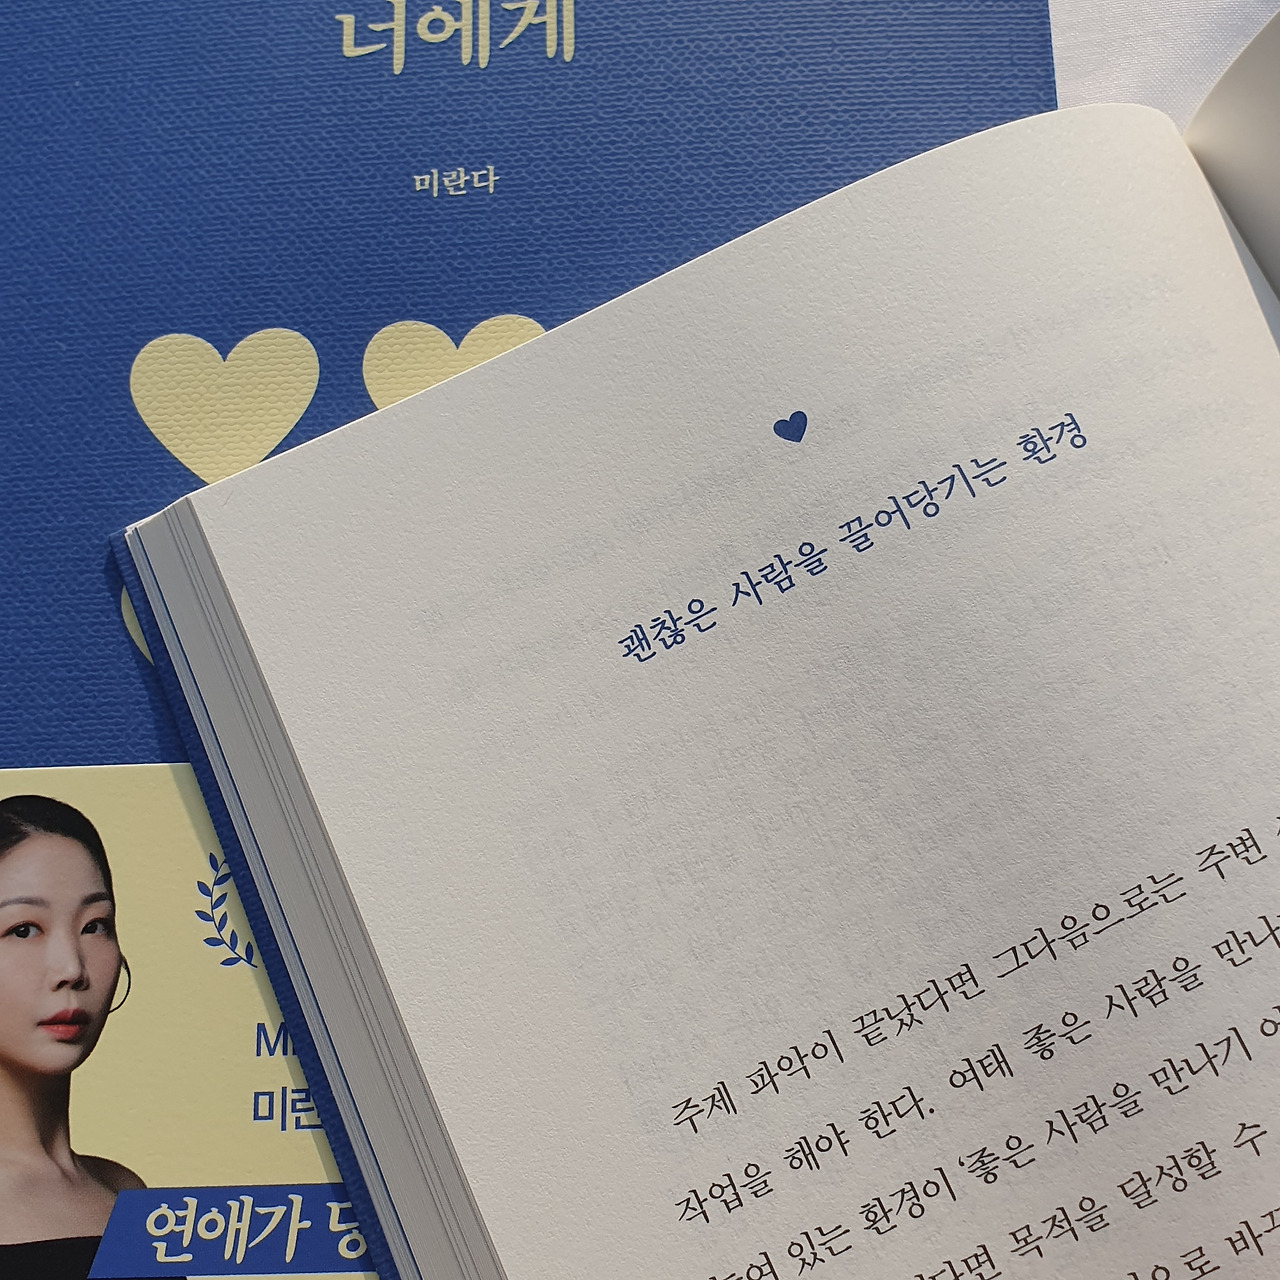 너에게
미란다
괜찮은 사람을 끌어당기는 환경
주제 파악이 끝났다면 그다음으로는 주변
작업을 해야 한다. 여태 좋은 사람을
있는 환경이 ‘좋은 사람을 만나기
목적을 달성할 수
연애가